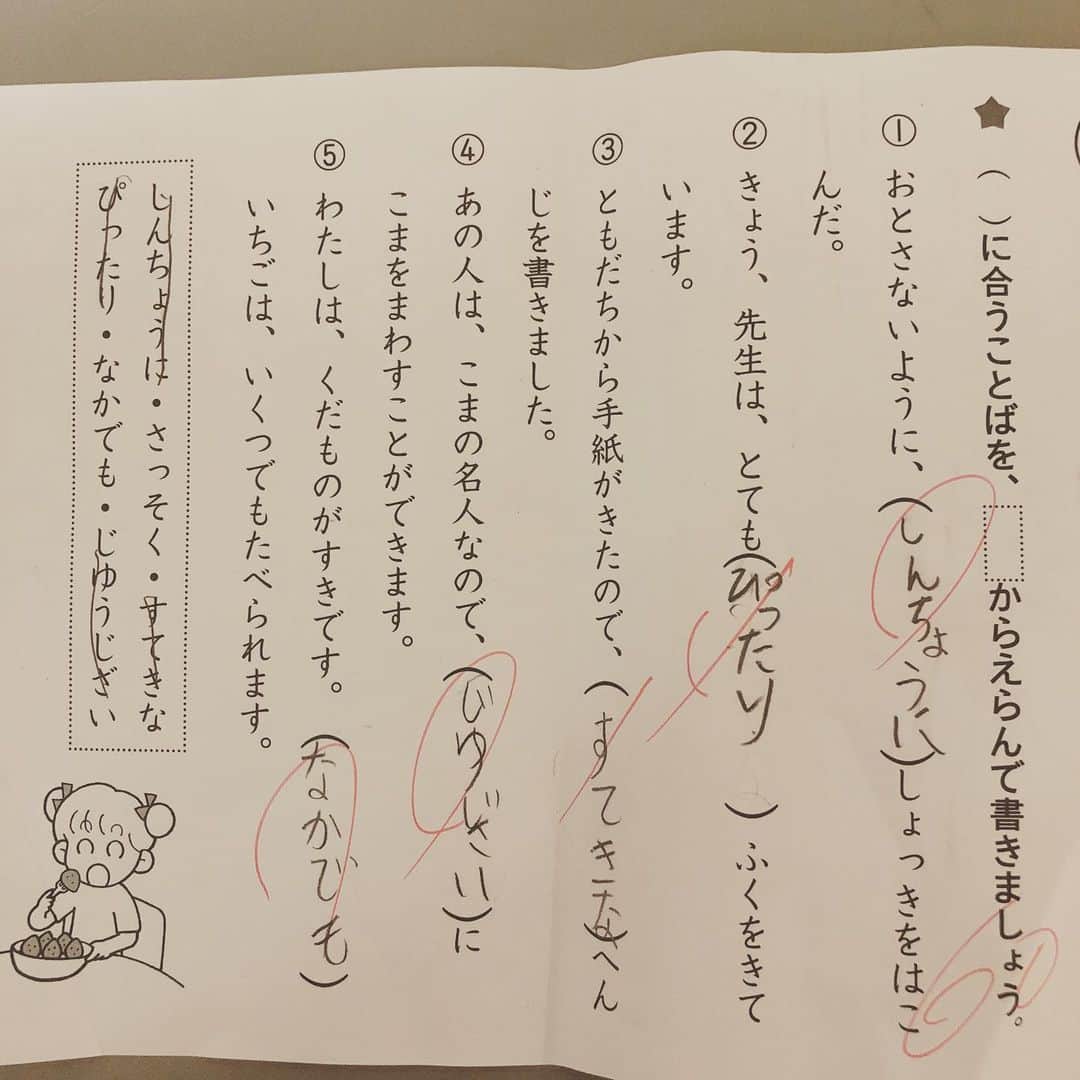 ★（　）に合うことばを、　からえらんで書きましょう。
① おとさないように、（しんちょうに）しょっきをはこ
んだ。
② きょう、先生は、とても（ぴったり）ふくをきて
います。
③ ともだちから手紙がきたので、（すてきな）へん
じを書きました。
④ あの人は、こまの名人なので、（じゆじざい）に
こまをまわすことができます。
⑤ わたしは、くだものがすきです。（なかでも）
いちごは、いくつでもたべられます。
しんちょうに・さっそく・すてきな
ぴったり・なかでも・じゆうじざい